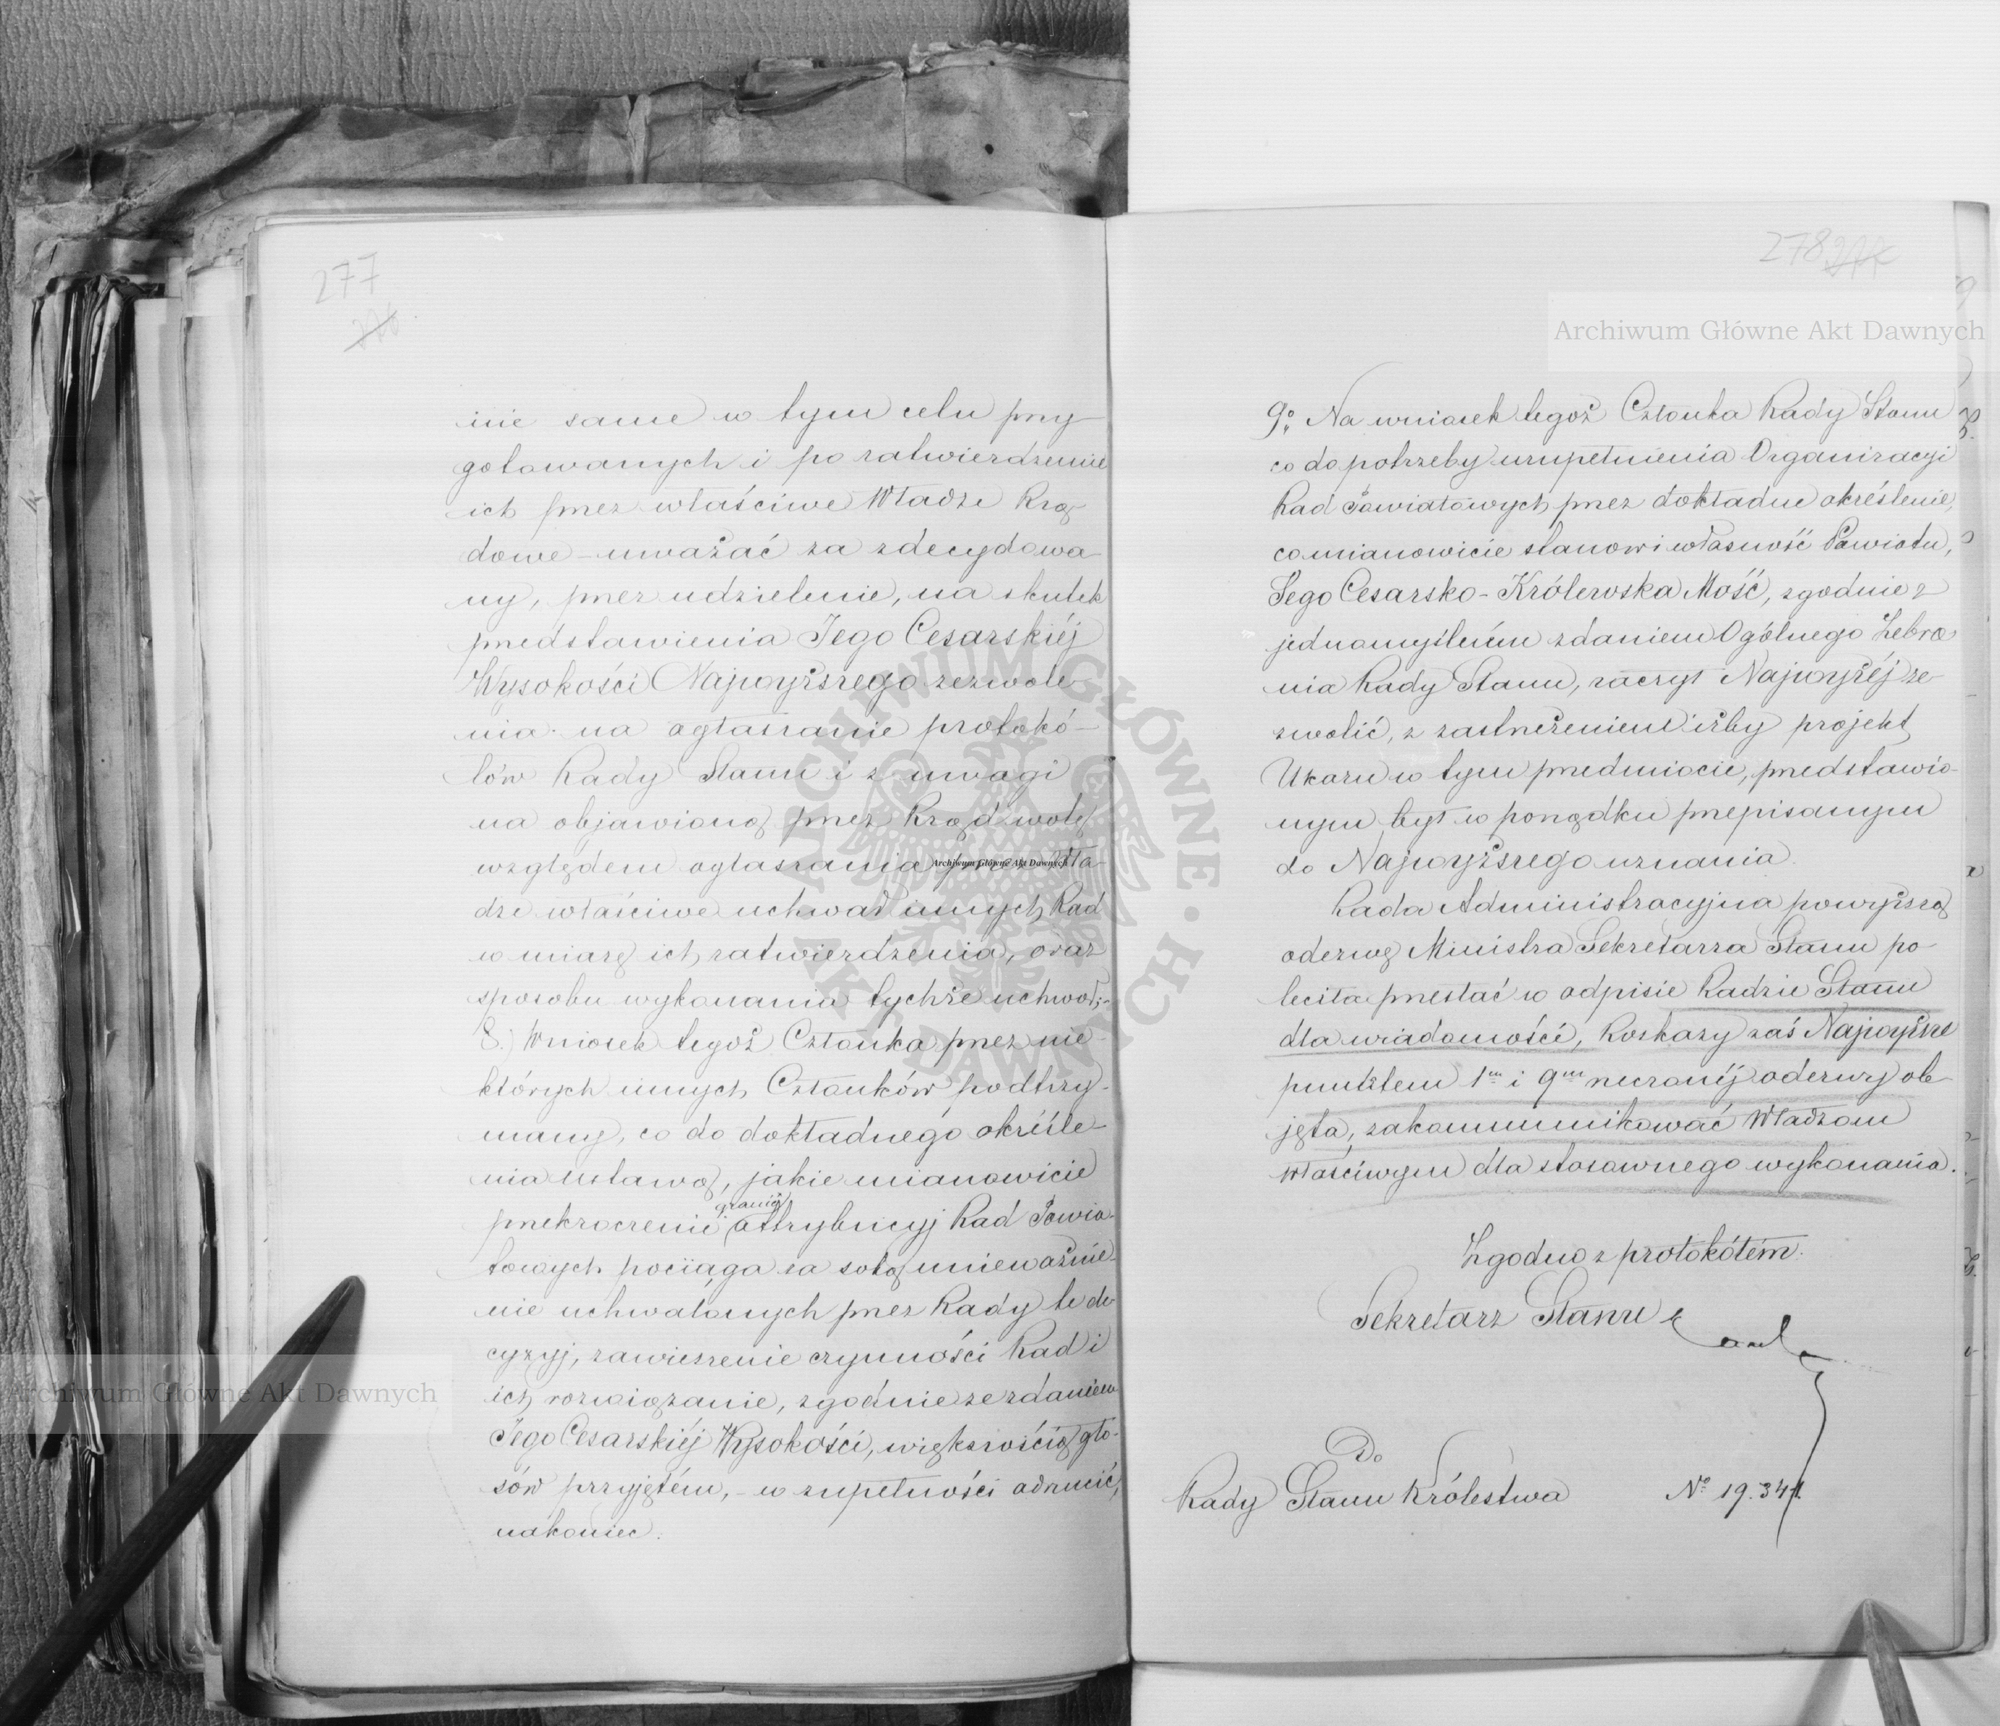 277
276
inie same w tym celu przy
gotowanych i po zatwierdzenie
ich przez właściwe Władze Rzą
dowe – uważać za zdecydowa
ny, przez udzielenie, na skutek
przedstawienia Jego Cesarskiéj
Wysokości Najwyższego zezwole
nia na ogłaszanie protokó-
łów Rady Stanu i z uwagi
na objawioną przez Rząd wolę
względem ogłaszania przez Wła-
dze właściwe uchwał innych Rad
w miarę ich zatwierdzenia, oraz
sposobu wykonania tychże uchwał;-
8.) Wniosek tegoż Członka przez nie
których innych Członków podtrzy-
many, co do dokładnego okréśle-
nia ustawą, jakie mianowicie
przekroczenie granic attrybucyj Rad Powia-
towych pociąga za sobą unieważnie-
nie uchwalonych przez Rady te de
cyzyj, zawieszenie czynności Rad i
ich rozwiązanie, zgodnie ze zdaniem
Jego Cesarskiéj Wysokości, większością gło-
sów przyjętém, – w zupełności odrzucić,
nakoniec.
278
9o. Na wniosek tegoż Członka Rady Stanu
co do potrzeby uzupełnienia Organizacyi
Rad Powiatowych przez dokładne okréślenie,
co mianowicie stanowi własność Powiatu,
Jego Cesarsko-Królewska Mość, zgodnie z
jednomyślném zdaniem Ogólnego Zebra
nia Rady Stanu, raczył Najwyżéj ze-
zwolić, z zastrzeżeniem iżby projekt
Ukazu w tym przedmiocie, przedstawio-
nym był w porządku przepisanym
do Najwyższego uznania.
Rada Administracyjna powyższą
odezwę Ministra Sekretarza Stanu po-
leciła przesłać w odpisie Radzie Stanu
dla wiadomości, Rozkazy zaś Najwyższe
punktem 1m i 9m rzeczonéj odezwy ob-
jęte, zakommunikować Władzom
właściwym dla stosownego wykonania.
Zgodno z protokółem.
Sekretarz Stanu
Do
Rady Stanu Królestwa
No 19.341.
Archiwum Główne Akt Dawnych
Archiwum Główne Akt Dawnych
Archiwum Główne Akt Dawnych
ARCHIWUM GŁÓWNE AKT DAWNYCH